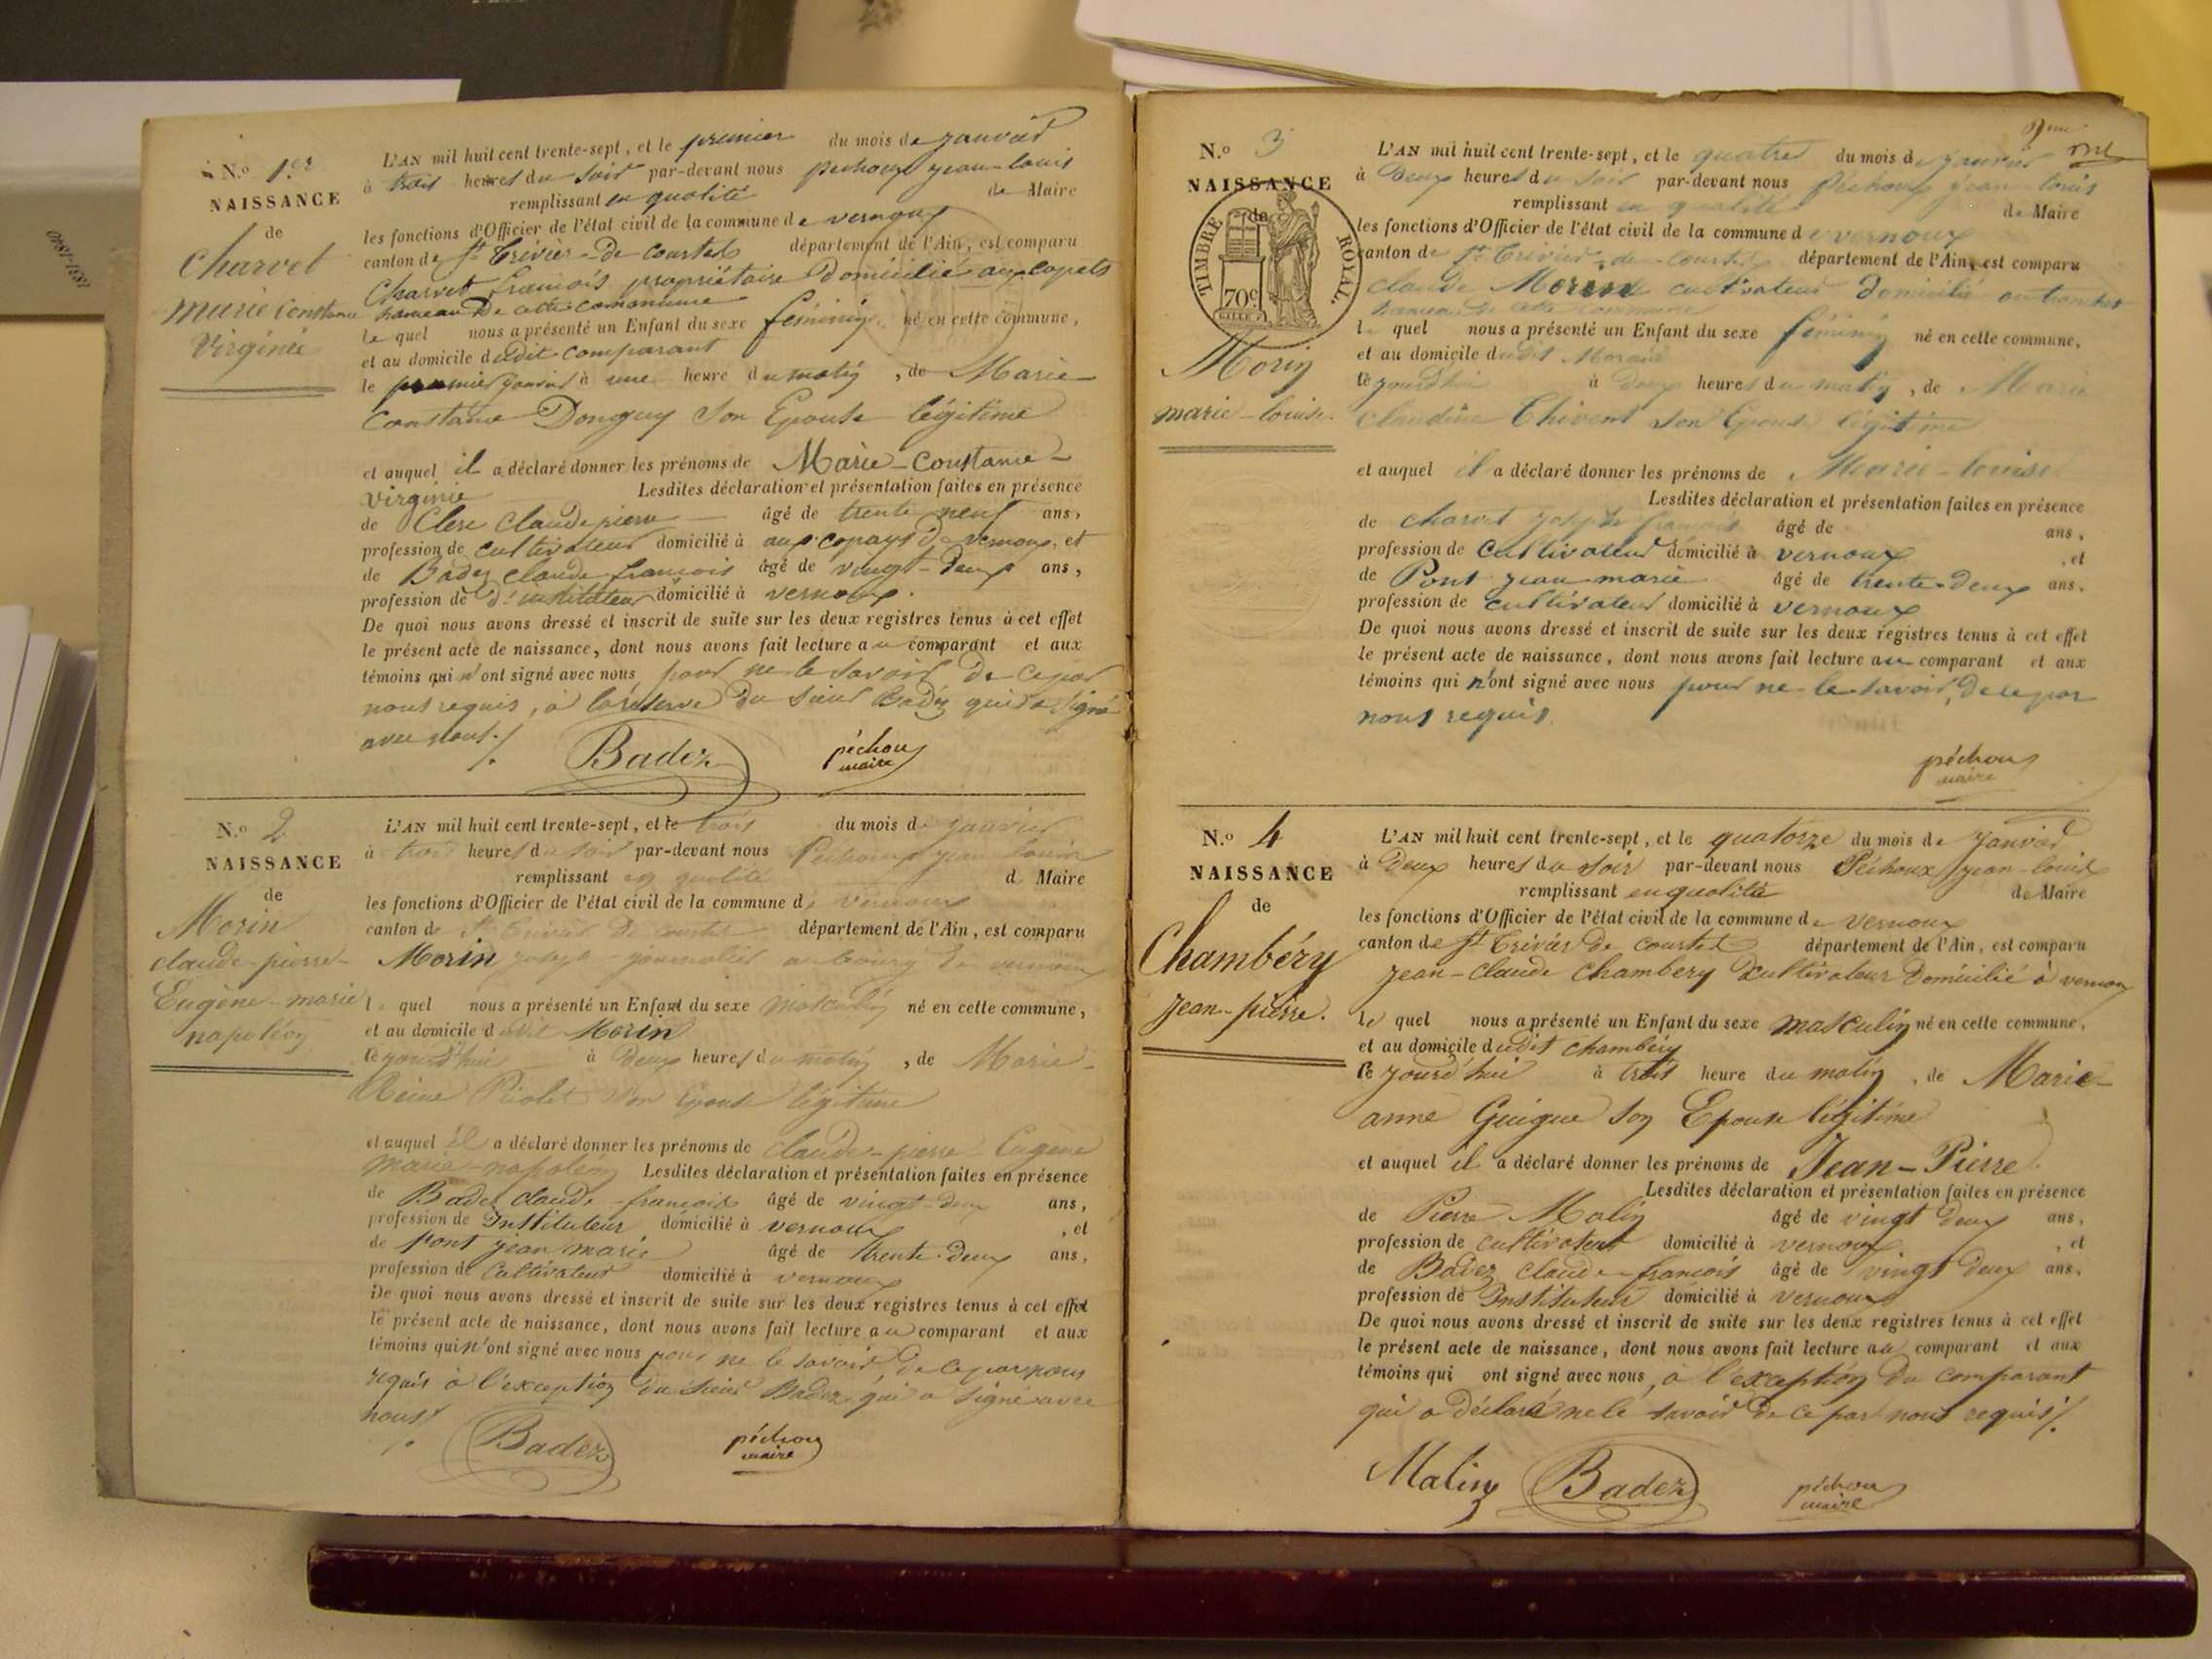 N.º 1.er
NAISSANCE
de
Charvet
marie constance
Virginie
L'AN mil huit cent trente-sept, et le premier du mois de janvier
à trois heures du soir par-devant nous pechoux jean-louis
remplissant en qualité de Maire
les fonctions d'Officier de l'état civil de la commune de vernoux
canton de St Trivier-de-Courtes département de l'Ain, est comparu
Charvet françois propriétaire Domicilié aux
hameau De cette commune
le quel nous a présenté un Enfant du sexe féminin né en cette commune,
et au domicile dudit comparant
le premier janvier à une heure du matin, de Marie
Constance Donguy son Epouse légitime
et auquel il a déclaré donner les prénoms de Marie-Constance-
Virginie Lesdites déclaration et présentation faites en présence
de Clere Claude pierre âgé de trente neuf ans,
profession de cultivateur domicilié à aux De vernoux, et
de Badez claude françois âgé de vingt-deux ans,
profession de d'instituteur domicilié à vernoux.
De quoi nous avons dressé et inscrit de suite sur les deux registres tenus à cet effet
le présent acte de naissance, dont nous avons fait lecture au comparant et aux
témoins qui n'ont signé avec nous pour ne le savoir De ce par
nous requis, à la réserve du sieur Badez qui a signé
avec nous./.
Badez péchoux
maire
N.º 2
NAISSANCE
de
Morin
claude-pierre-
Eugène-marie
napoléon
L'AN mil huit cent trente-sept, et le trois du mois de janvier
à trois heures du soir par-devant nous Pechoux jean louis
remplissant en qualité de Maire
les fonctions d'Officier de l'état civil de la commune de vernoux
canton de St Trivier De courtes département de l'Ain, est comparu
Morin joseph journalier au bourg De vernoux
le quel nous a présenté un Enfant du sexe masculin né en cette commune,
et au domicile dudit Morin
le jourd'hui à deux heures du matin, de Marie-
Reine Piolet son Epouse légitime
et auquel il a déclaré donner les prénoms de claude-pierre Eugène
marie-napoléon Lesdites déclaration et présentation faites en présence
de Badez claude-françois âgé de vingt-deux ans,
profession de Instituteur domicilié à vernoux, et
de Pont jean marie âgé de trente-deux ans,
profession de Cultivateur domicilié à vernoux
De quoi nous avons dressé et inscrit de suite sur les deux registres tenus à cet effet
le présent acte de naissance, dont nous avons fait lecture au comparant et aux
témoins qui n'ont signé avec nous pour ne le savoir, de ce par nous
requis à l'exception du sieur Badez qui a signé avec
nous/.
Badez péchoux
maire
N.º 3
NAISSANCE
de
TIMBRE ROYAL.
70c
Morin
marie-louise.
L'AN mil huit cent trente-sept, et le quatre du mois de janvier
à Deux heures du soir par-devant nous Péchoux jean louis
remplissant en qualité de Maire
les fonctions d'Officier de l'état civil de la commune de vernoux
canton de St Trivier de courtes département de l'Ain, est comparu
claude Morin cultivateur domicilié
hameau de cette commune
le quel nous a présenté un Enfant du sexe féminin né en cette commune,
et au domicile dudit Morin
le jourd'hui à deux heures du matin, de Marie
claudine Thivent son Epouse légitime
et auquel il a déclaré donner les prénoms de Marie-louise
Lesdites déclaration et présentation faites en présence
de charvet joseph françois âgé de ans,
profession de cultivateur domicilié à vernoux, et
de Pont jean marie âgé de trente-deux ans.
profession de cultivateur domicilié à vernoux
De quoi nous avons dressé et inscrit de suite sur les deux registres tenus à cet effet
le présent acte de naissance, dont nous avons fait lecture au comparant et aux
témoins qui n'ont signé avec nous pour ne le savoir, de ce par
nous requis.
péchoux
maire
N.º 4
NAISSANCE
de
Chambéry
Jean-pierre.
L'AN mil huit cent trente-sept, et le quatorze du mois de Janvier
à Deux heures du soir par-devant nous Péchoux jean-louis
remplissant en qualité de Maire
les fonctions d'Officier de l'état civil de la commune de vernoux
canton de St Trivier De courtes département de l'Ain, est comparu
jean-claude Chambery cultivateur Domicilié à vernoux
le quel nous a présenté un Enfant du sexe masculin né en cette commune,
et au domicile dudit chambéry
le jourd'hui à trois heure du matin, de Marie-
anne Guigue son Epouse légitime
et auquel il a déclaré donner les prénoms de Jean-Pierre.
Lesdites déclaration et présentation faites en présence
de Pierre Malin âgé de vingt deux ans,
profession de cultivateur domicilié à vernoux, et
de Badez claude-françois âgé de vingt deux ans.
profession de Instituteur domicilié à vernoux
De quoi nous avons dressé et inscrit de suite sur les deux registres tenus à cet effet
le présent acte de naissance, dont nous avons fait lecture au comparant et aux
témoins qui ont signé avec nous, à l'exception du comparant
qui a déclaré ne le savoir de ce par nous requis/.
Malin Badez péchoux
maire